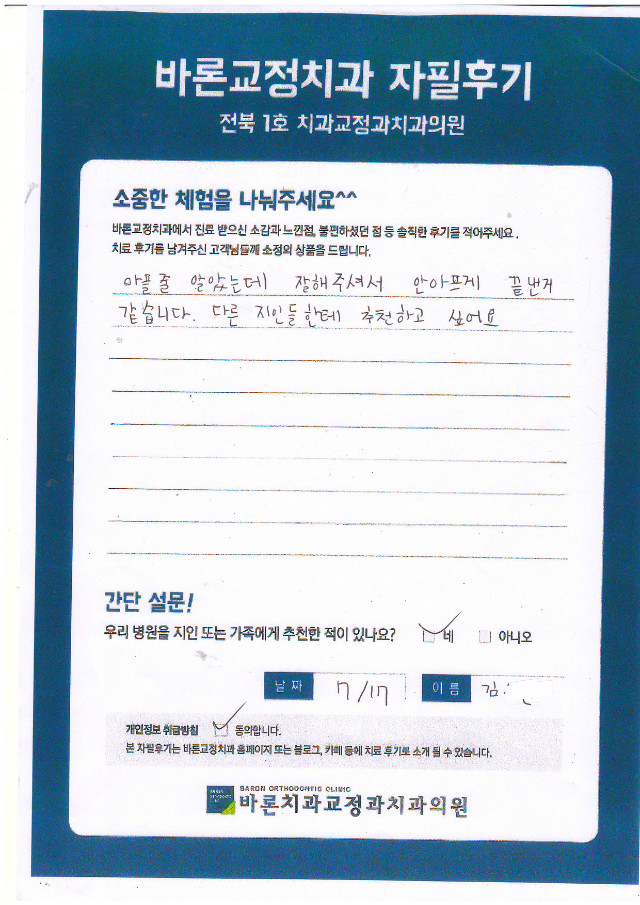 바론교정치과 자필후기
전북 1호 치과교정과치과의원
소중한 체험을 나눠주세요^^
바론교정치과에서 진료 받으신 소감과 느낀점, 불편하셨던 점 등 솔직한 후기를 적어주세요.
치료 후기를 남겨주신 고객님들께 소정의 상품을 드립니다.
아플줄 알았는데 잘해주셔서 안아프게 끝난거
같습니다. 다른 지인들한테 추천하고 싶어요
간단 설문!
우리 병원을 지인 또는 가족에게 추천한 적이 있나요? 네 아니오
날짜 7/17 이름 김
개인정보 취급방침 동의합니다.
본 자필후기는 바론교정치과 홈페이지 또는 블로그, 카페 등에 치료 후기로 소개 될 수 있습니다.
BARON ORTHODONTIC CLINIC
바론치과교정과치과의원